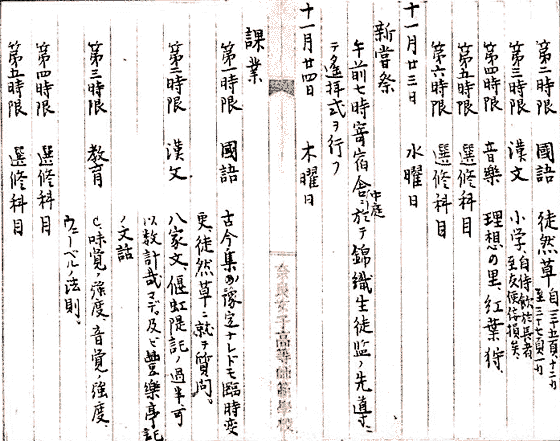 第二時限 國語 徒然草 自三五頁、十二行 至三十七頁一行
第三時限 漢文 小学、自侍飲於長者 至友便佞損矣、
第四時限 音樂 理想の里、紅葉狩、
第五時限 選修科目
第六時限 選修科目
十一月廿三日 水曜日
新嘗祭
午前七時寄宿舎中庭ニ於テ錦織生徒監ノ先導ニ
テ遙拝式ヲ行フ
十一月廿四日 木曜日
奈良女子高等師範學校
課業
第一時限 國語 古今集ノ豫定ナレドモ臨時変
更、徒然草ニ就テ質問。
第二時限 漢文 八家文、偃虹隄記ノ過半可
以数計哉マデ。及ビ豊樂亭記
ノ文話
第三時限 教育 C、味覚ノ強度、音覚ノ強度、
ウェーベルノ法則、
第四時限 選修科目
第五時限 選修科目